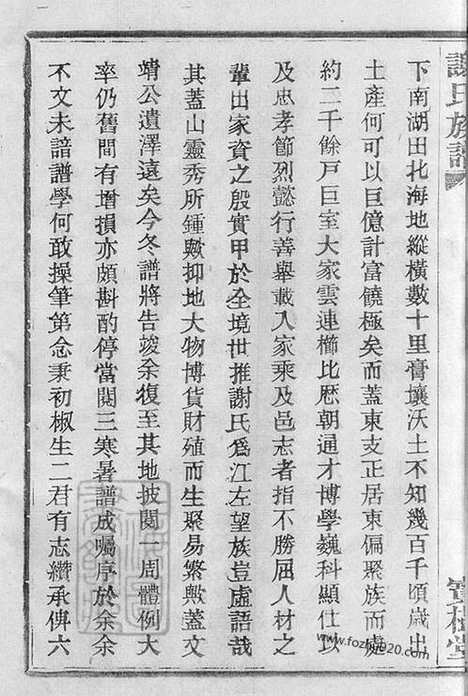 謝氏族譜
寶樹堂
下南湖田北海地縱橫數十里膏壤沃土不知幾百千頃歲出
土產何可以巨億計富饒極矣而蓋東支正居東偏聚族而處
約二千餘戶巨室大家雲連櫛比歷朝通才博學巍科顯仕以
及忠孝節烈懿行善舉載入家乘及邑志者指不勝屈人材之
輩出家資之殷實甲於全境世推謝氏爲江左望族豈虛語哉
其蓋山靈秀所鍾歟抑地大物博貨財殖而生聚易繁歟蓋文
靖公遺澤遠矣今冬譜將告竣余復至其地披閱一周體例大
率仍舊間有增損亦頗斟酌停當閱三寒暑譜成囑序於余余
不文未諳譜學何敢操筆第念秉初椒生二君有志纘承俾六
www.fozu920.com